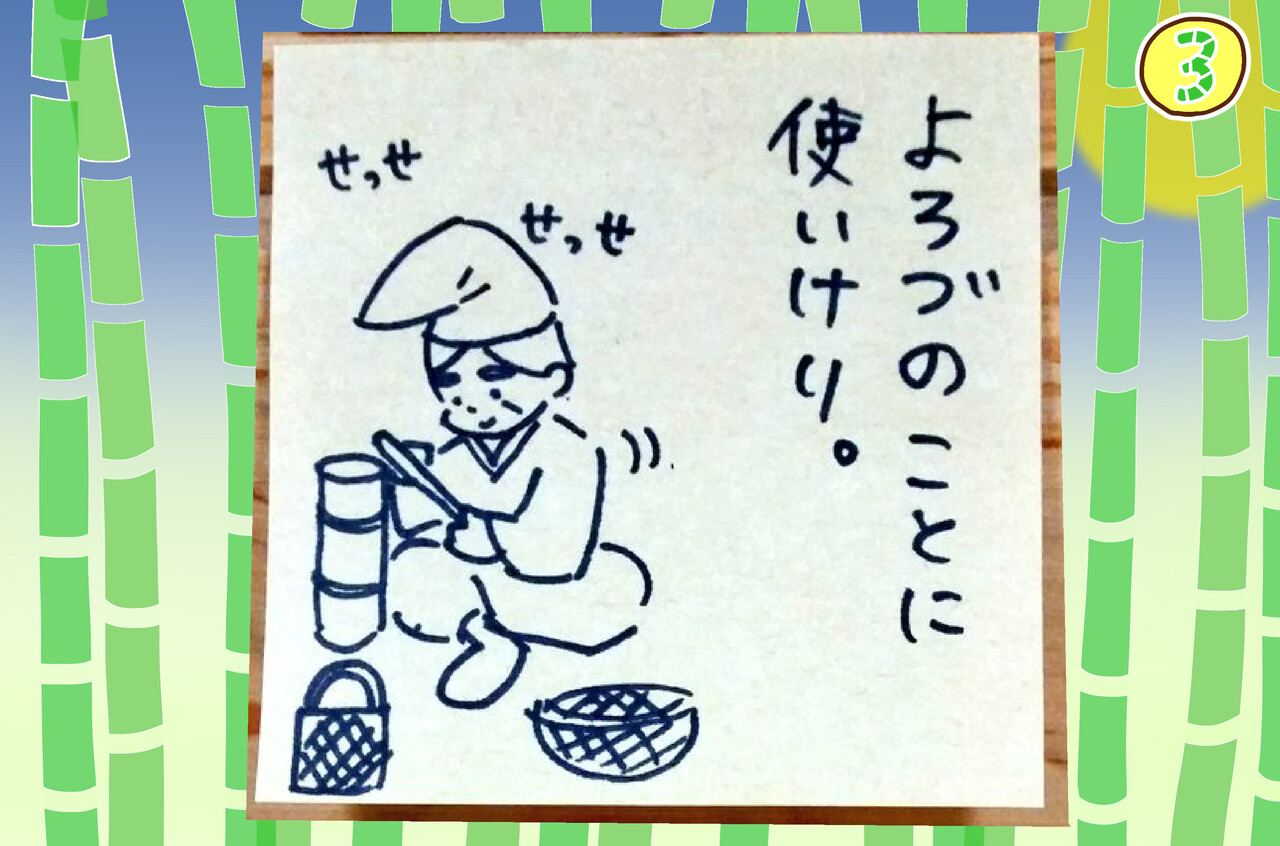 よろづのことに
使いけり。
せっせ
せっせ
3